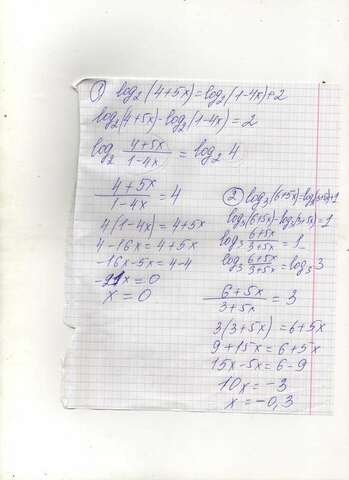 1 log₂(4+5x)=log₂(1-4x)+2
log₂(4+5x)-log₂(1-4x)=2
log₂ (4+5x)/(1-4x) = log₂ 4
(4+5x)/(1-4x) = 4
4(1-4x)=4+5x
4-16x=4+5x
-16x-5x=4-4
-21x=0
x=0
2 log₃(6+5x)=log₃(3+5x)+1
log₃(6+5x)-log₃(3+5x)=1
log₃ (6+5x)/(3+5x) = 1
log₃ (6+5x)/(3+5x) = log₃ 3
(6+5x)/(3+5x) = 3
3(3+5x)=6+5x
9+15x=6+5x
15x-5x=6-9
10x=-3
x=-0,3